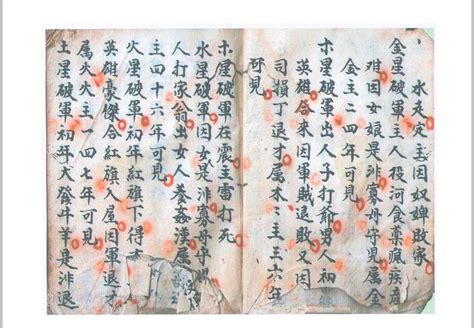 水定主因奴婢敗家
金星破軍主人投河食藥瘋疾產
难因女娘是非寡母守児属金
金主二四年可見
木星破軍出人子打爺男人初
英雄后來因軍賊退敗又因
司損丁退才属木三六年
可見
木星破軍在震主雷打死
水星破軍因女是非寡母守
人打家翁出女人養姦漢属
主四十六年可見
火星破軍初年紅旗下得
英雄豪傑合紅旗入屋因軍退才
属火火主一四七年可見
土星破軍初年大發牛羊是非退